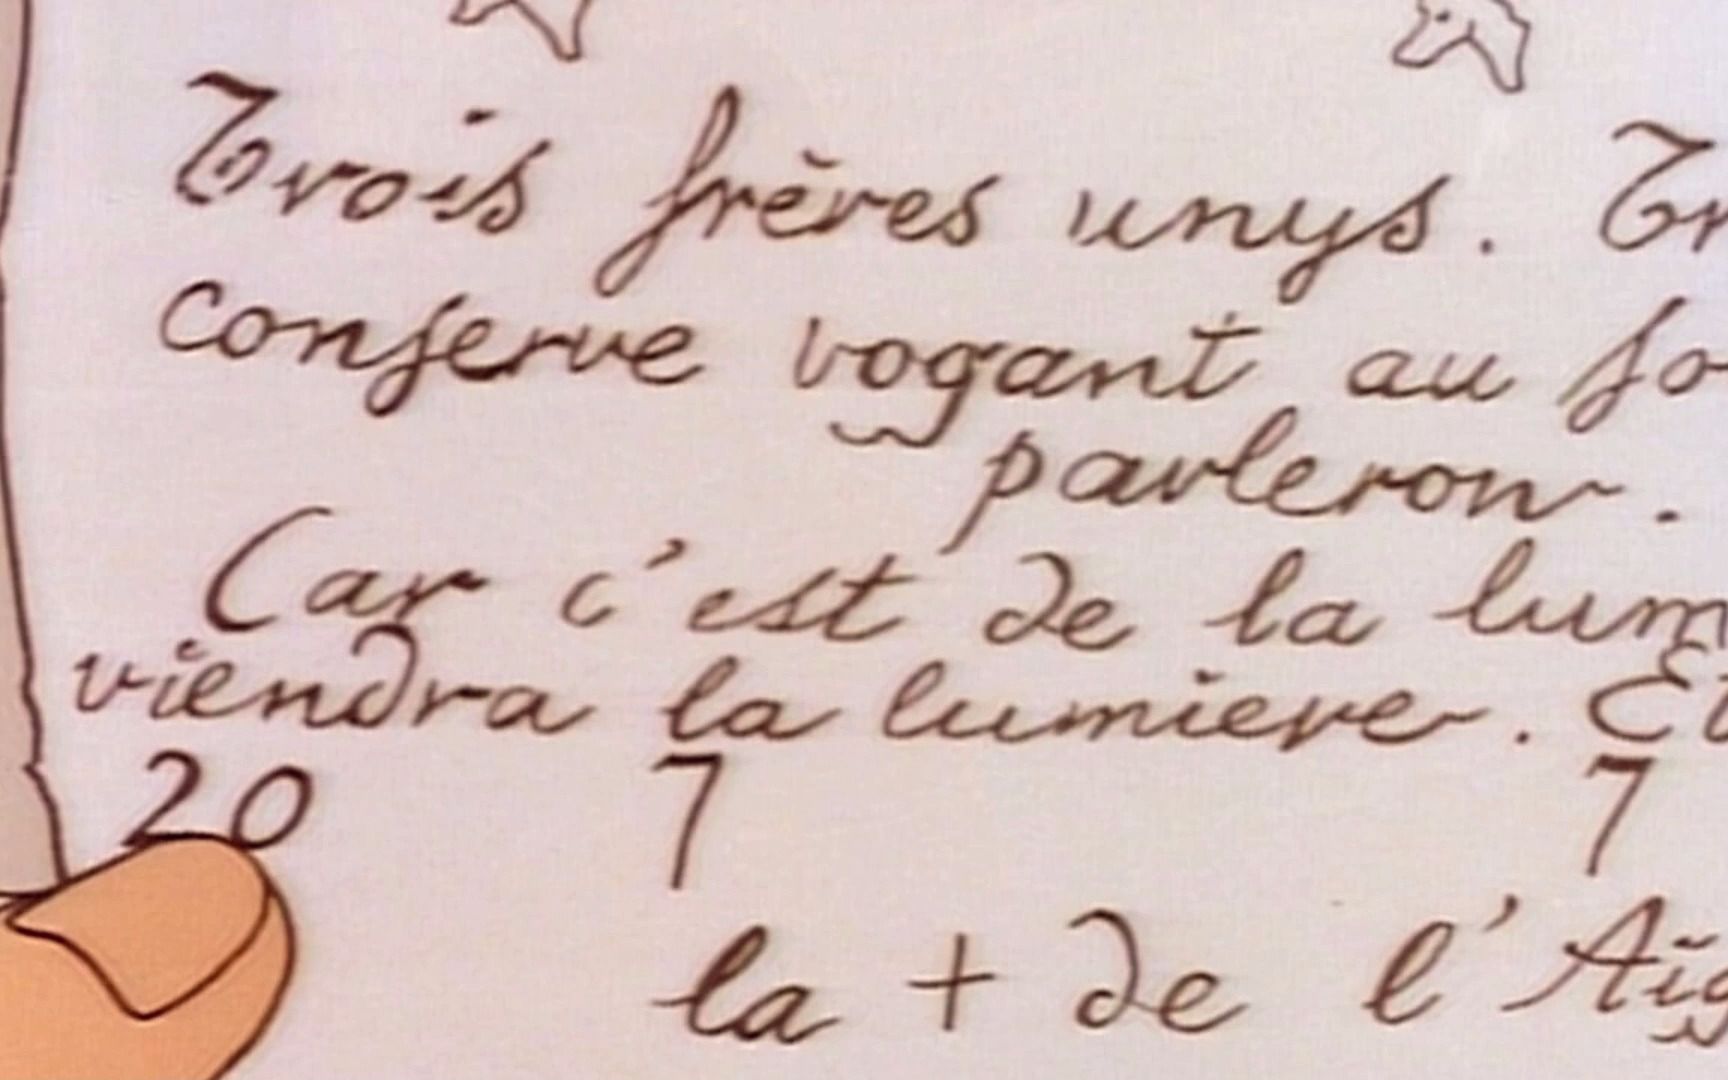 Trois frères unys. Tr
conserve vogant au so
parleron.
Car c'est de la lum
viendra la lumiere. Et
20 7 7
la + de l'Aig